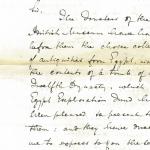 Sir,
The Trustees of the
British Museum have had
before them the choice collec
of antiquities from Egypt,
the contents of a tomb of
Twelfth Dynasty, which
Egypt Exploration Fund ha
been pleased to present to
them: and they have dire
me to express to you the